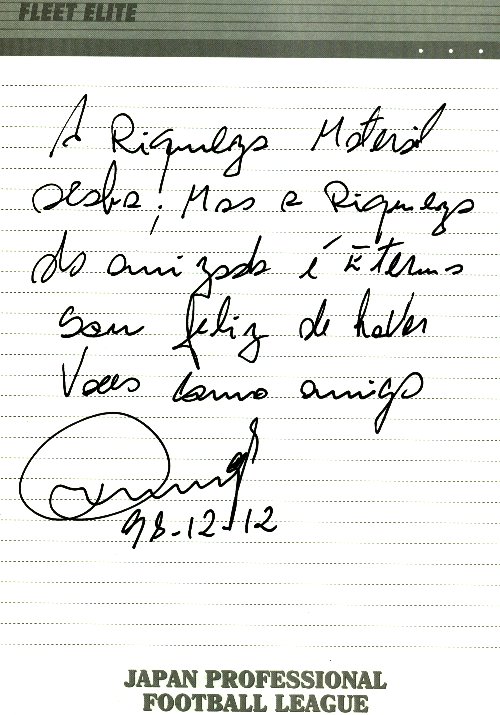 FLEET ELITE
A Riqueza Material
acaba; Mas a Riqueza
da amizade é Eterna
Sou feliz de haver
Voces como amigo
98-12-12
JAPAN PROFESSIONAL
FOOTBALL LEAGUE